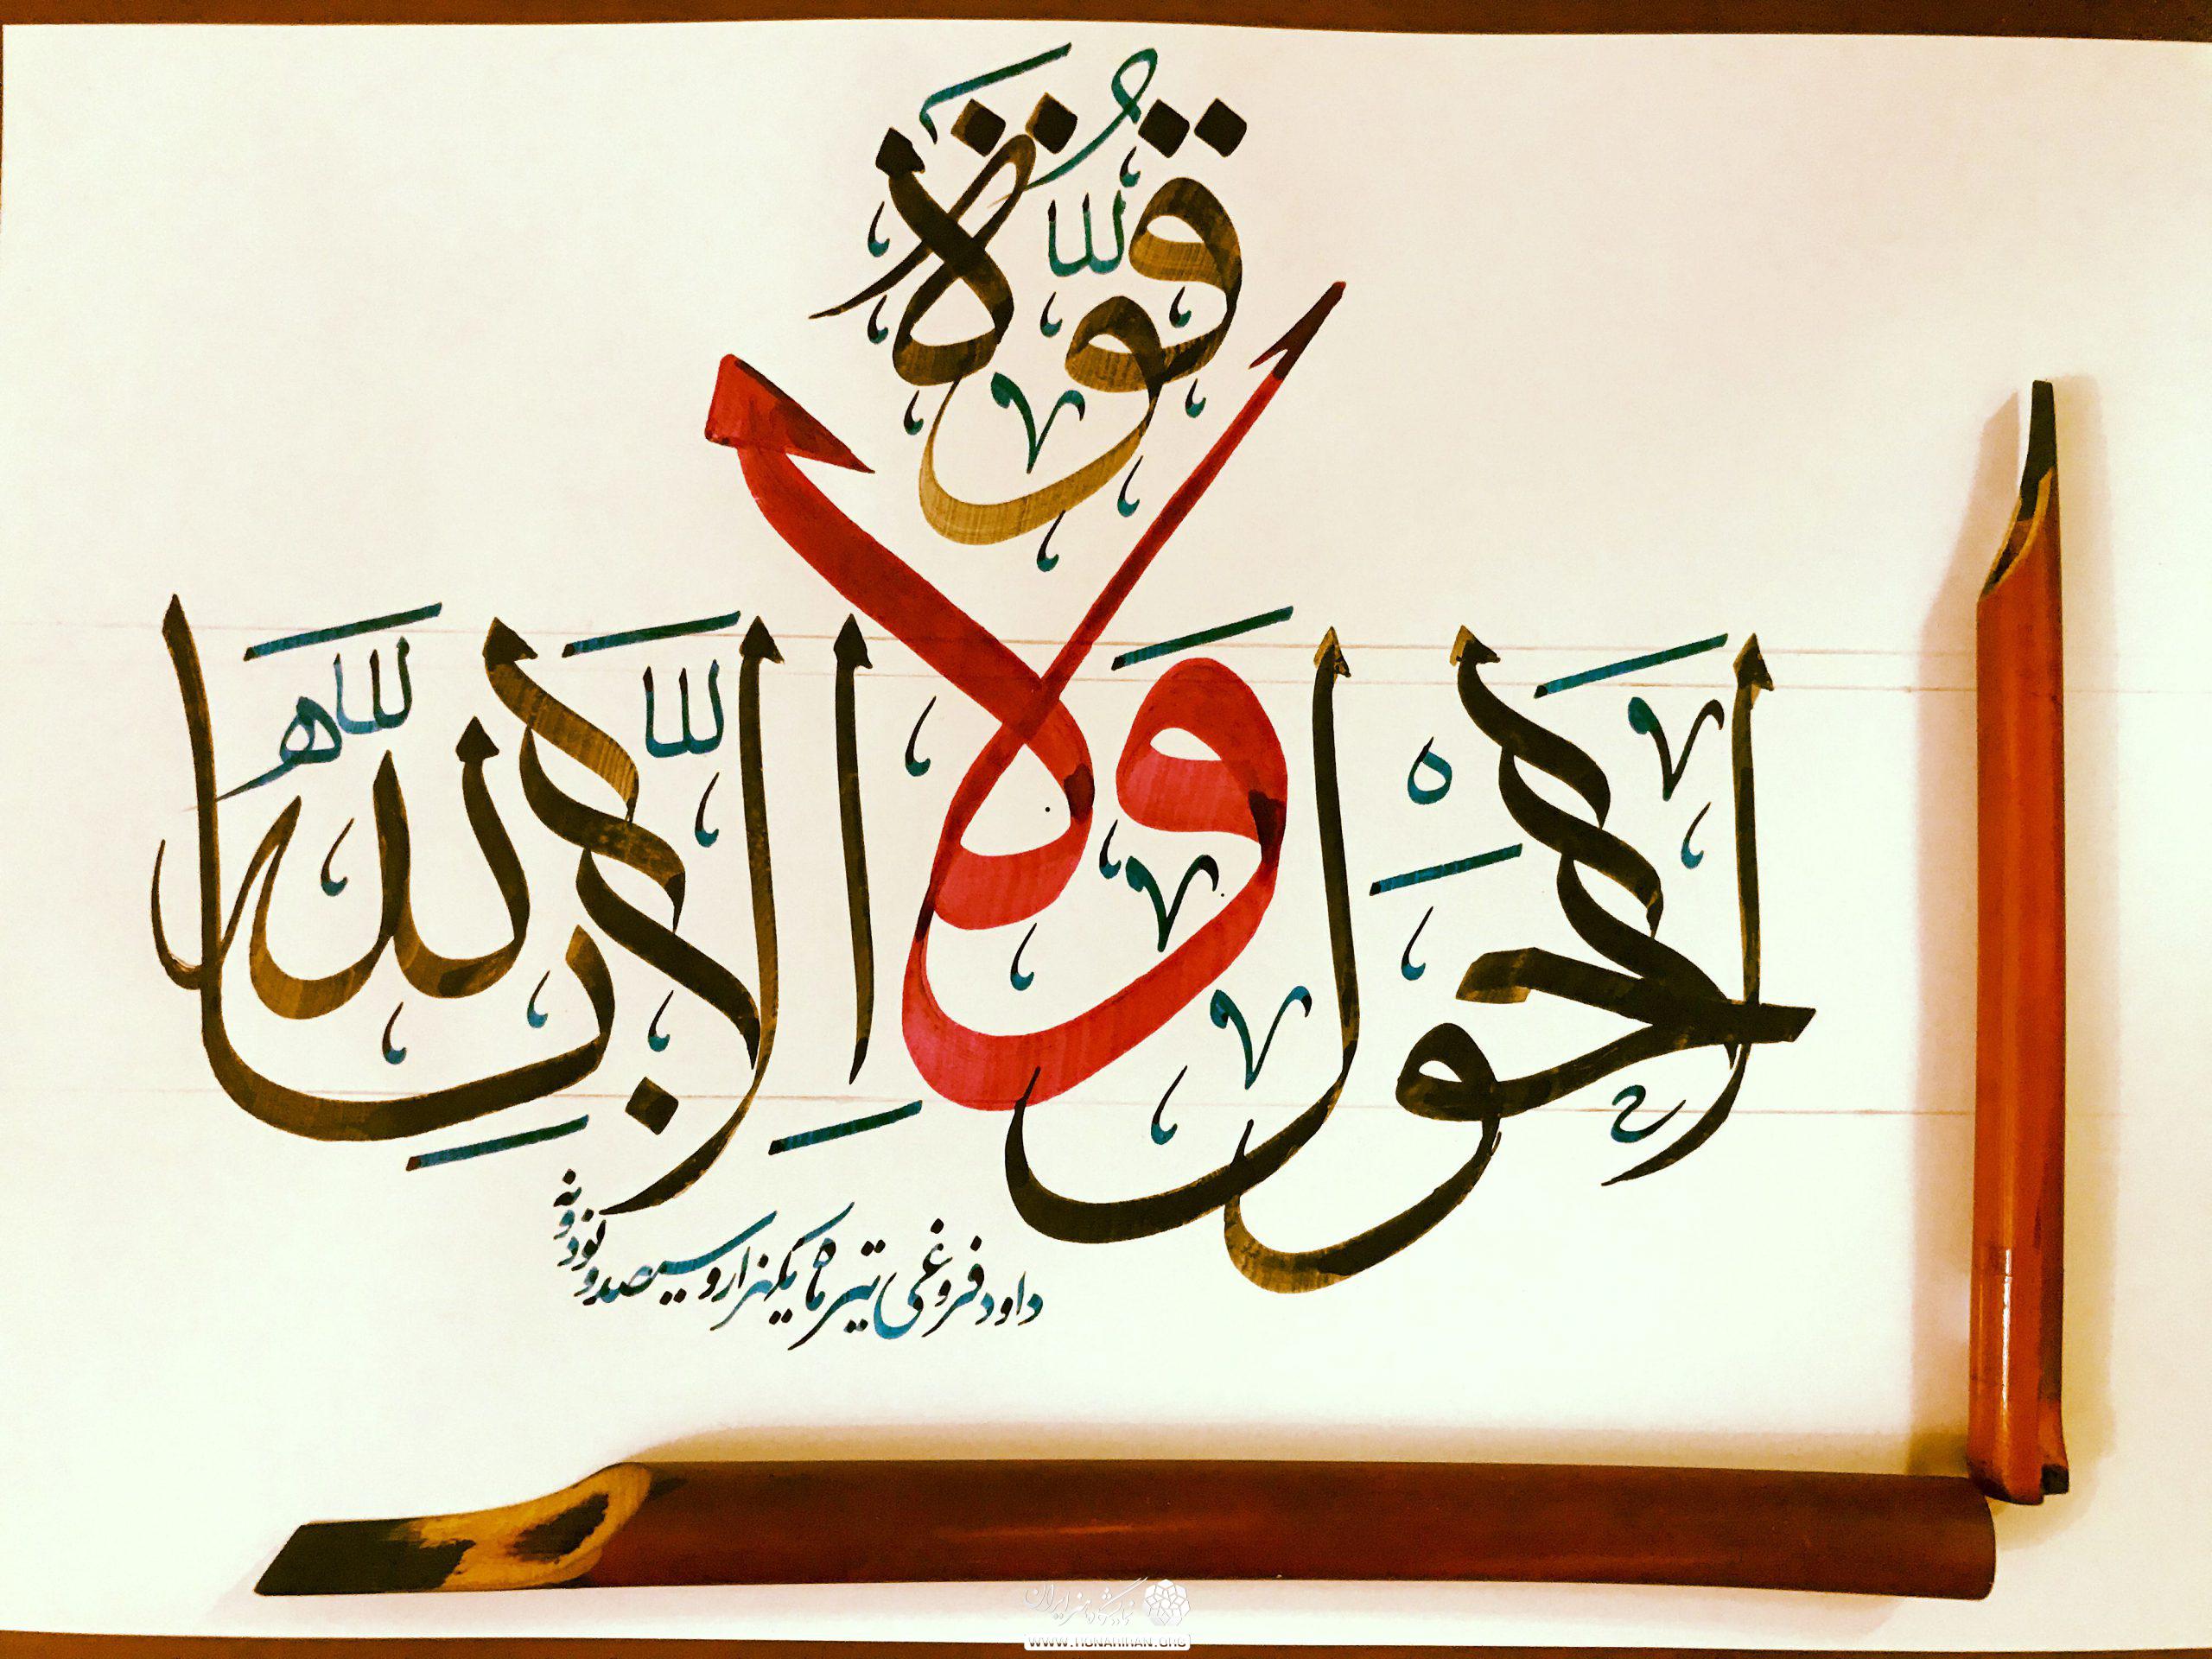 لا حول ولا قوة إلا بالله
داود فروغی تیر ماه یکهزار و سیصد و نود و نه
نمایشگاه هنر ایران
WWW.HONARIRAN.ORG